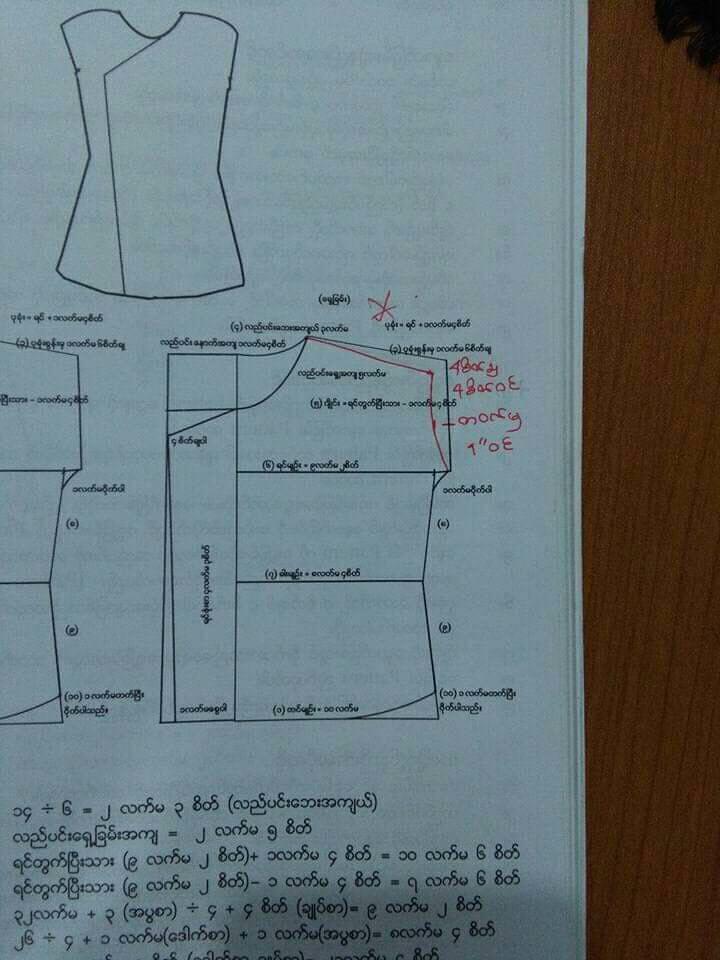 (ရှေ့ခြမ်း)
ပုခုံး = ရင် + ၁လက်မ၄စိတ်
(၄) လည်ပင်းဘေးအကျယ် ၃လက်မ
ပုခုံး = ရင် + ၁လက်မ၄စိတ်
(၃) ပုခုံးစွန်းမှ ၁လက်မ ၆စိတ်ချ
လည်ပင်း နောက်အကျ ၁လက်မ၄စိတ်
(၃) ပုခုံးစွန်းမှ ၁လက်မ ၆စိတ်ချ
လည်ပင်းရှေ့အကျ ၅လက်မ
ပြီးသား – ၁လက်မ၄စိတ်
(၅) ချိုင်း = ရင်တွက်ပြီးသား – ၁လက်မ ၄စိတ်
၄ စိတ်ချပါ
(၆) ရင်မျဉ်း = ၉လက်မ ၂စိတ်
၁လက်မဝိုက်ပါ
၁လက်မဝိုက်ပါ
(၈)
(၈)
ရင်ဖုံးစာ ၄လက်မ ၃စိတ်
(၇) ခါးမျဉ်း = ၈လက်မ ၄စိတ်
(၉)
(၉)
(၁၀) ၁ လက်မတက်ပြီး
ဝိုက်ပါသည်။
၁လက်မစွေပါ
(၁) တင်မျဉ်း = ၁၀ လက်မ
(၁၀) ၁ လက်မတက်ပြီး
ဝိုက်ပါသည်။
၁၄ ÷ ၆ = ၂ လက်မ ၃ စိတ် (လည်ပင်းဘေးအကျယ်)
လည်ပင်းရှေ့ခြမ်းအကျ = ၂ လက်မ ၅ စိတ်
ရင်တွက်ပြီးသား (၉ လက်မ ၂ စိတ်)+ ၁လက်မ ၄ စိတ် = ၁၀ လက်မ ၆ စိတ်
ရင်တွက်ပြီးသား (၉ လက်မ ၂ စိတ်)– ၁ လက်မ ၄ စိတ် = ၇ လက်မ ၆ စိတ်
၃၂လက်မ + ၃ (အပွစာ) ÷ ၄ + ၄ စိတ် (ချုပ်စာ)= ၉ လက်မ ၂ စိတ်
၂၆ ÷ ၄ + ၁ လက်မ(ဒေါက်စာ) + ၁ လက်မ(အပွစာ)= ၈လက်မ ၄ စိတ်